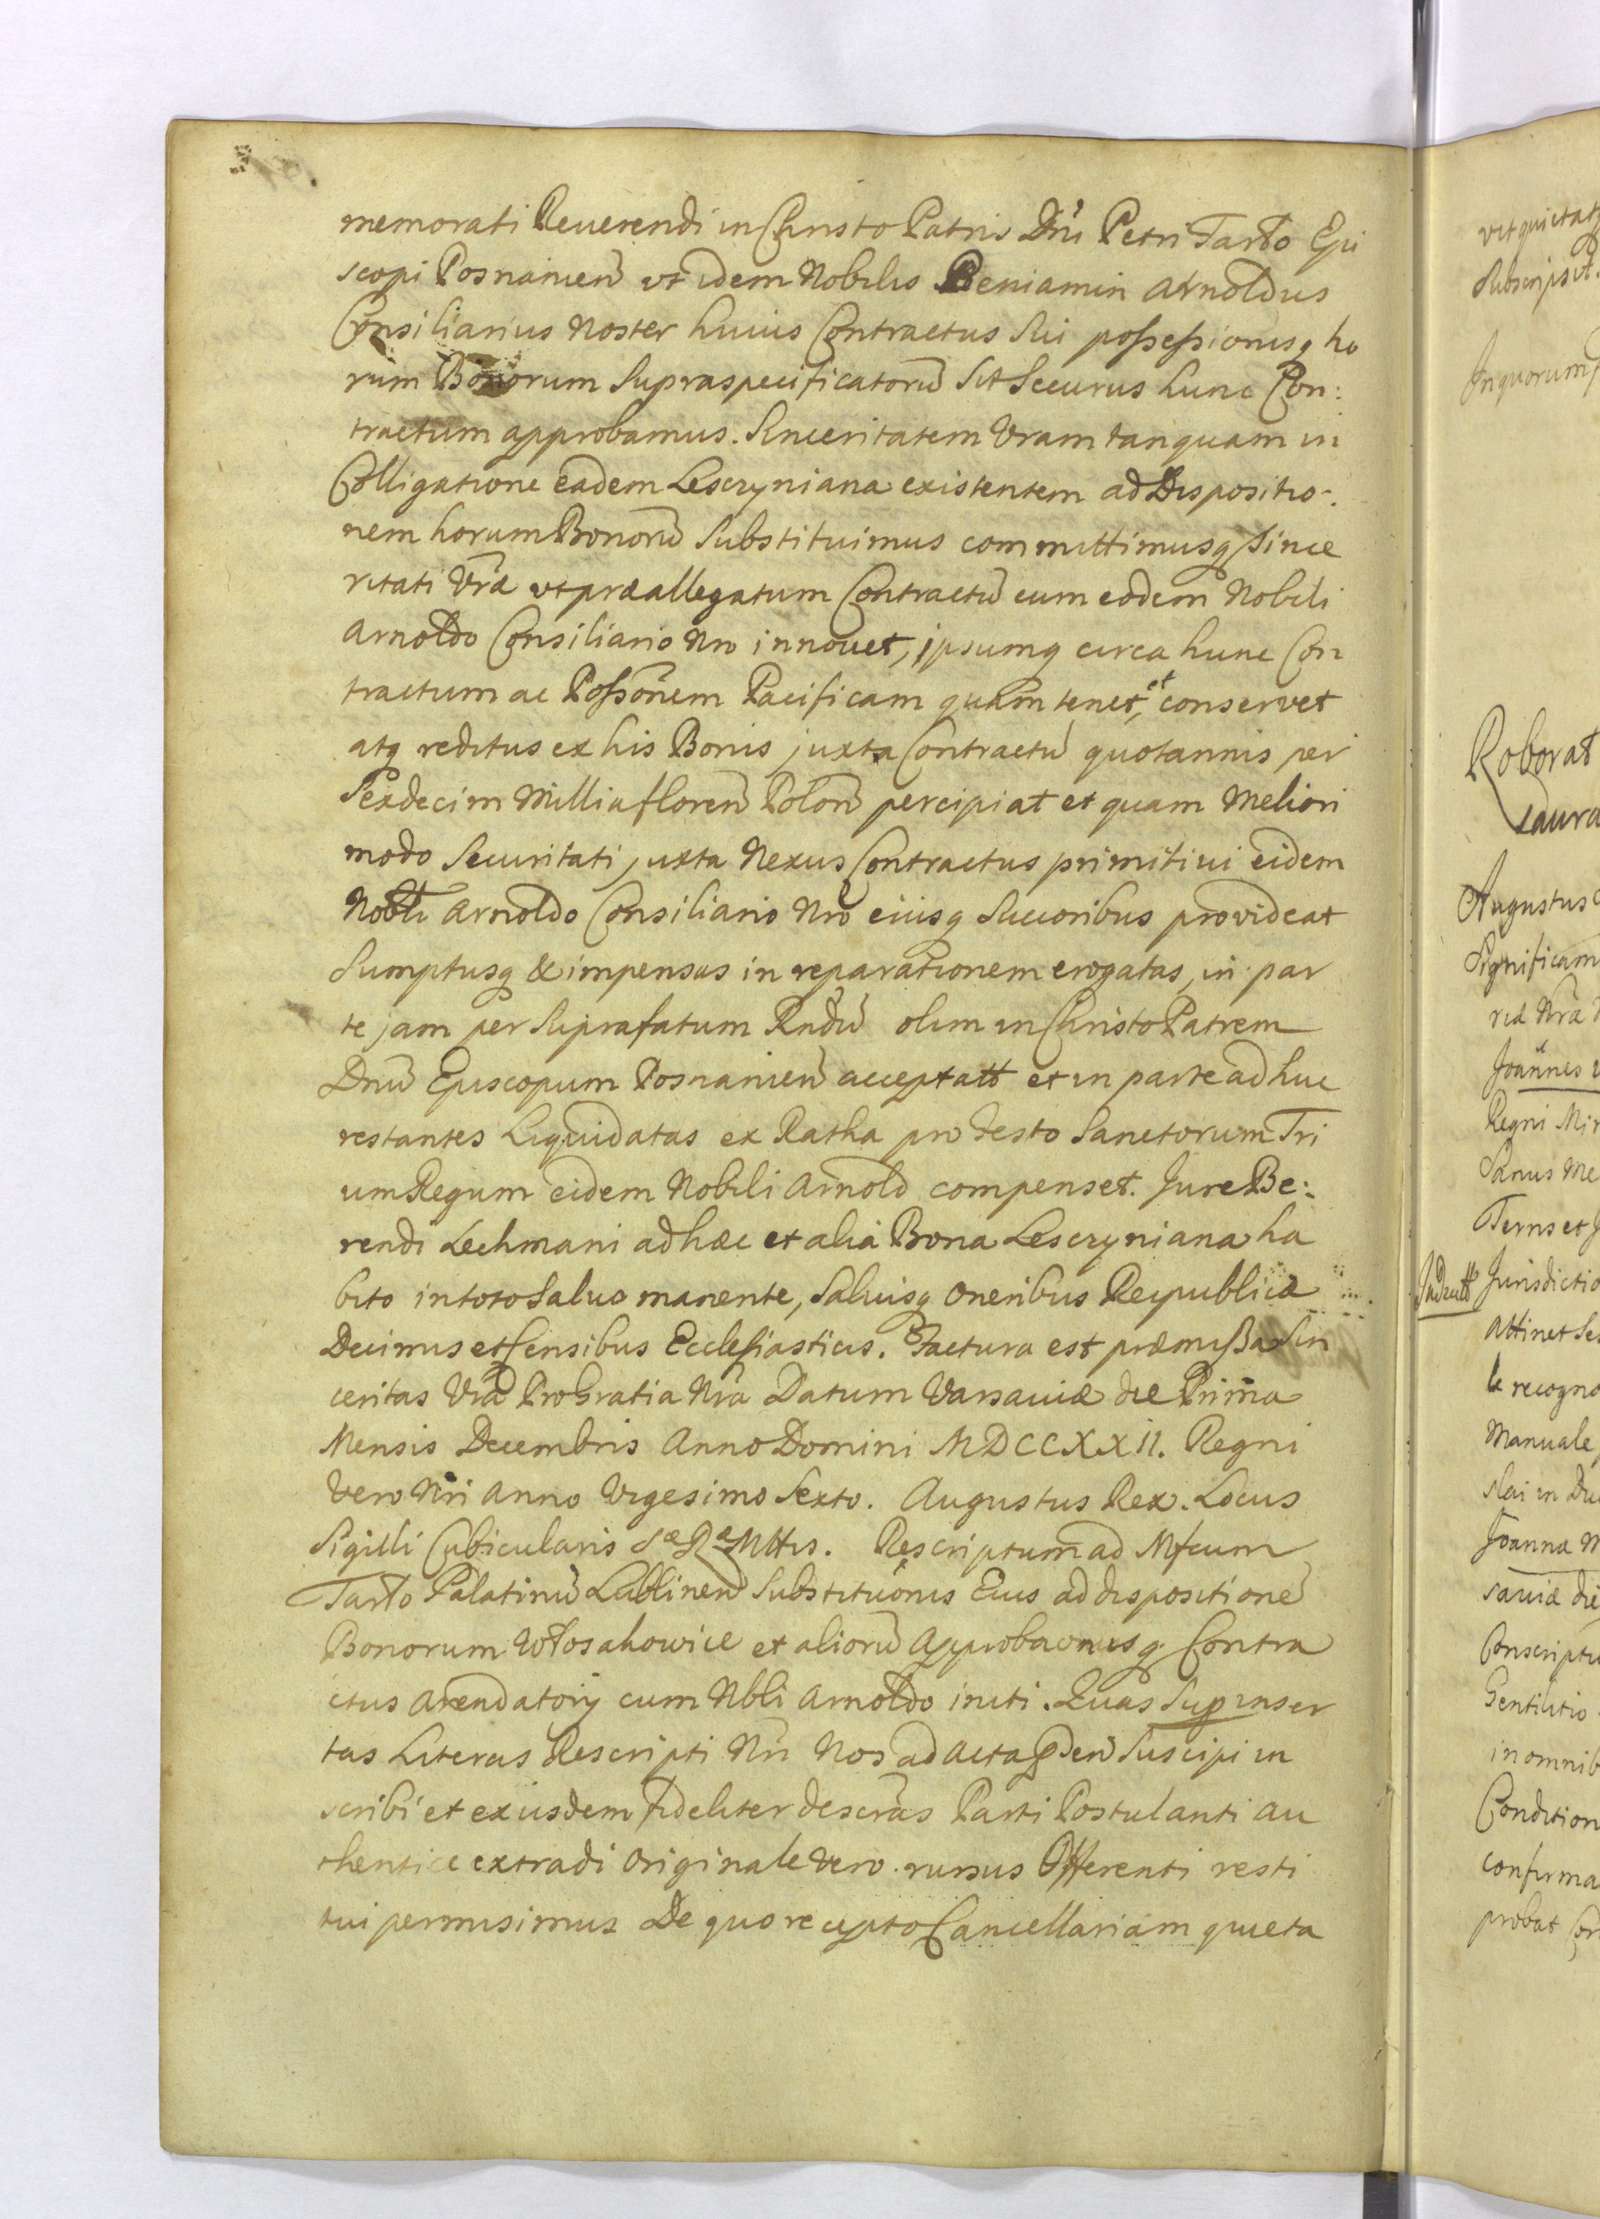 memorati Reuerendi in Christo Patris Dni Petri Tarło Epi
scopi Posnanien ut idem Nobilis Beniamin Arnoldus
Consiliarius Noster huius Contractus sui possessionisq ho
rum Bonorum supraspecificatorũ sit securus hunc Con:
tractum approbamus. Sinceritatem Vram tanquam in
Colligatione eadem Lesczyniana existentem ad Dispositio-
nem horum Bonorũ substituimus committimusq since
ritati Vræ ut præallegatum Contractũ cum eodem Nobili
Arnoldo Consiliario Nro innouet, ipsumq circa hunc Con
tractum ac Possonem Pacificam quam tenet, et conservet
atq reditus ex his Bonis juxta Contractũ quotannis per
Sexdecim Millia floren Polon percipiat et quam Meliori
modo Securitati juxta Nexus Contractus primitiui eidem
Nobli Arnoldo Consiliario Nro eiusq Succoribus provideat
Sumptusq & impensas in reparationem erogatas, in par
te jam per suprafatum Rndũ olim in Christo Patrem
Dnũ Episcopum Posnanien acceptatt et in parte adhuc
restantes Liquidatas ex Ratha pro Festo Sanctorum Tri
um Regum eidem Nobili Arnold compenset. Jure Be:
rendi Lechmani ad hæc et alia Bona Lesczyniana ha
bito in toto saluo manente, saluisq Oneribus Reipublicæ
Decimis et Censibus Ecclesiasticis. Factura est præmissa Sin
ceritas Vra Pro Gratia Nra Datum Varsaviæ die Prima
Mensis Decembris Anno Domini MDCCXXII. Regni
Vero Nri Anno Vigesimo Sexto. Augustus Rex. Locus
Sigilli Cubicularis Sæ Ræ Mttis. Rescriptum ad Mfcum
Tarło Palatinũ Lublinen Substituonis Eius ad dispositionẽ
Bonorum Włosakowice et aliorũ Approbaonisq Contra
ctus Arendatorij cum Nbli Arnoldo initi. Quas Sup inser
tas Literas Rescripti Nri Nos ad Acta pden suscipi in
scribi et exiisdem fideliter descras Parti Postulanti au
thentice extradi Originale vero rursus Offerenti resti
tui permisimus De quo recepto Cancellariam quieta
vit quietatq
Subscripsit.
In quorum f
Roborat
Laura
Augustus
Significam
riæ Nra
Joannes
Regni Mi
Sanus Me
Terns et
Induct Jurisdictio
Attinet Se
le recogno
Manuale
slai in Du
Joanna M
saviæ die
Conscriptu
Gentilitio
in omnib
Condition
confirma
probat Con